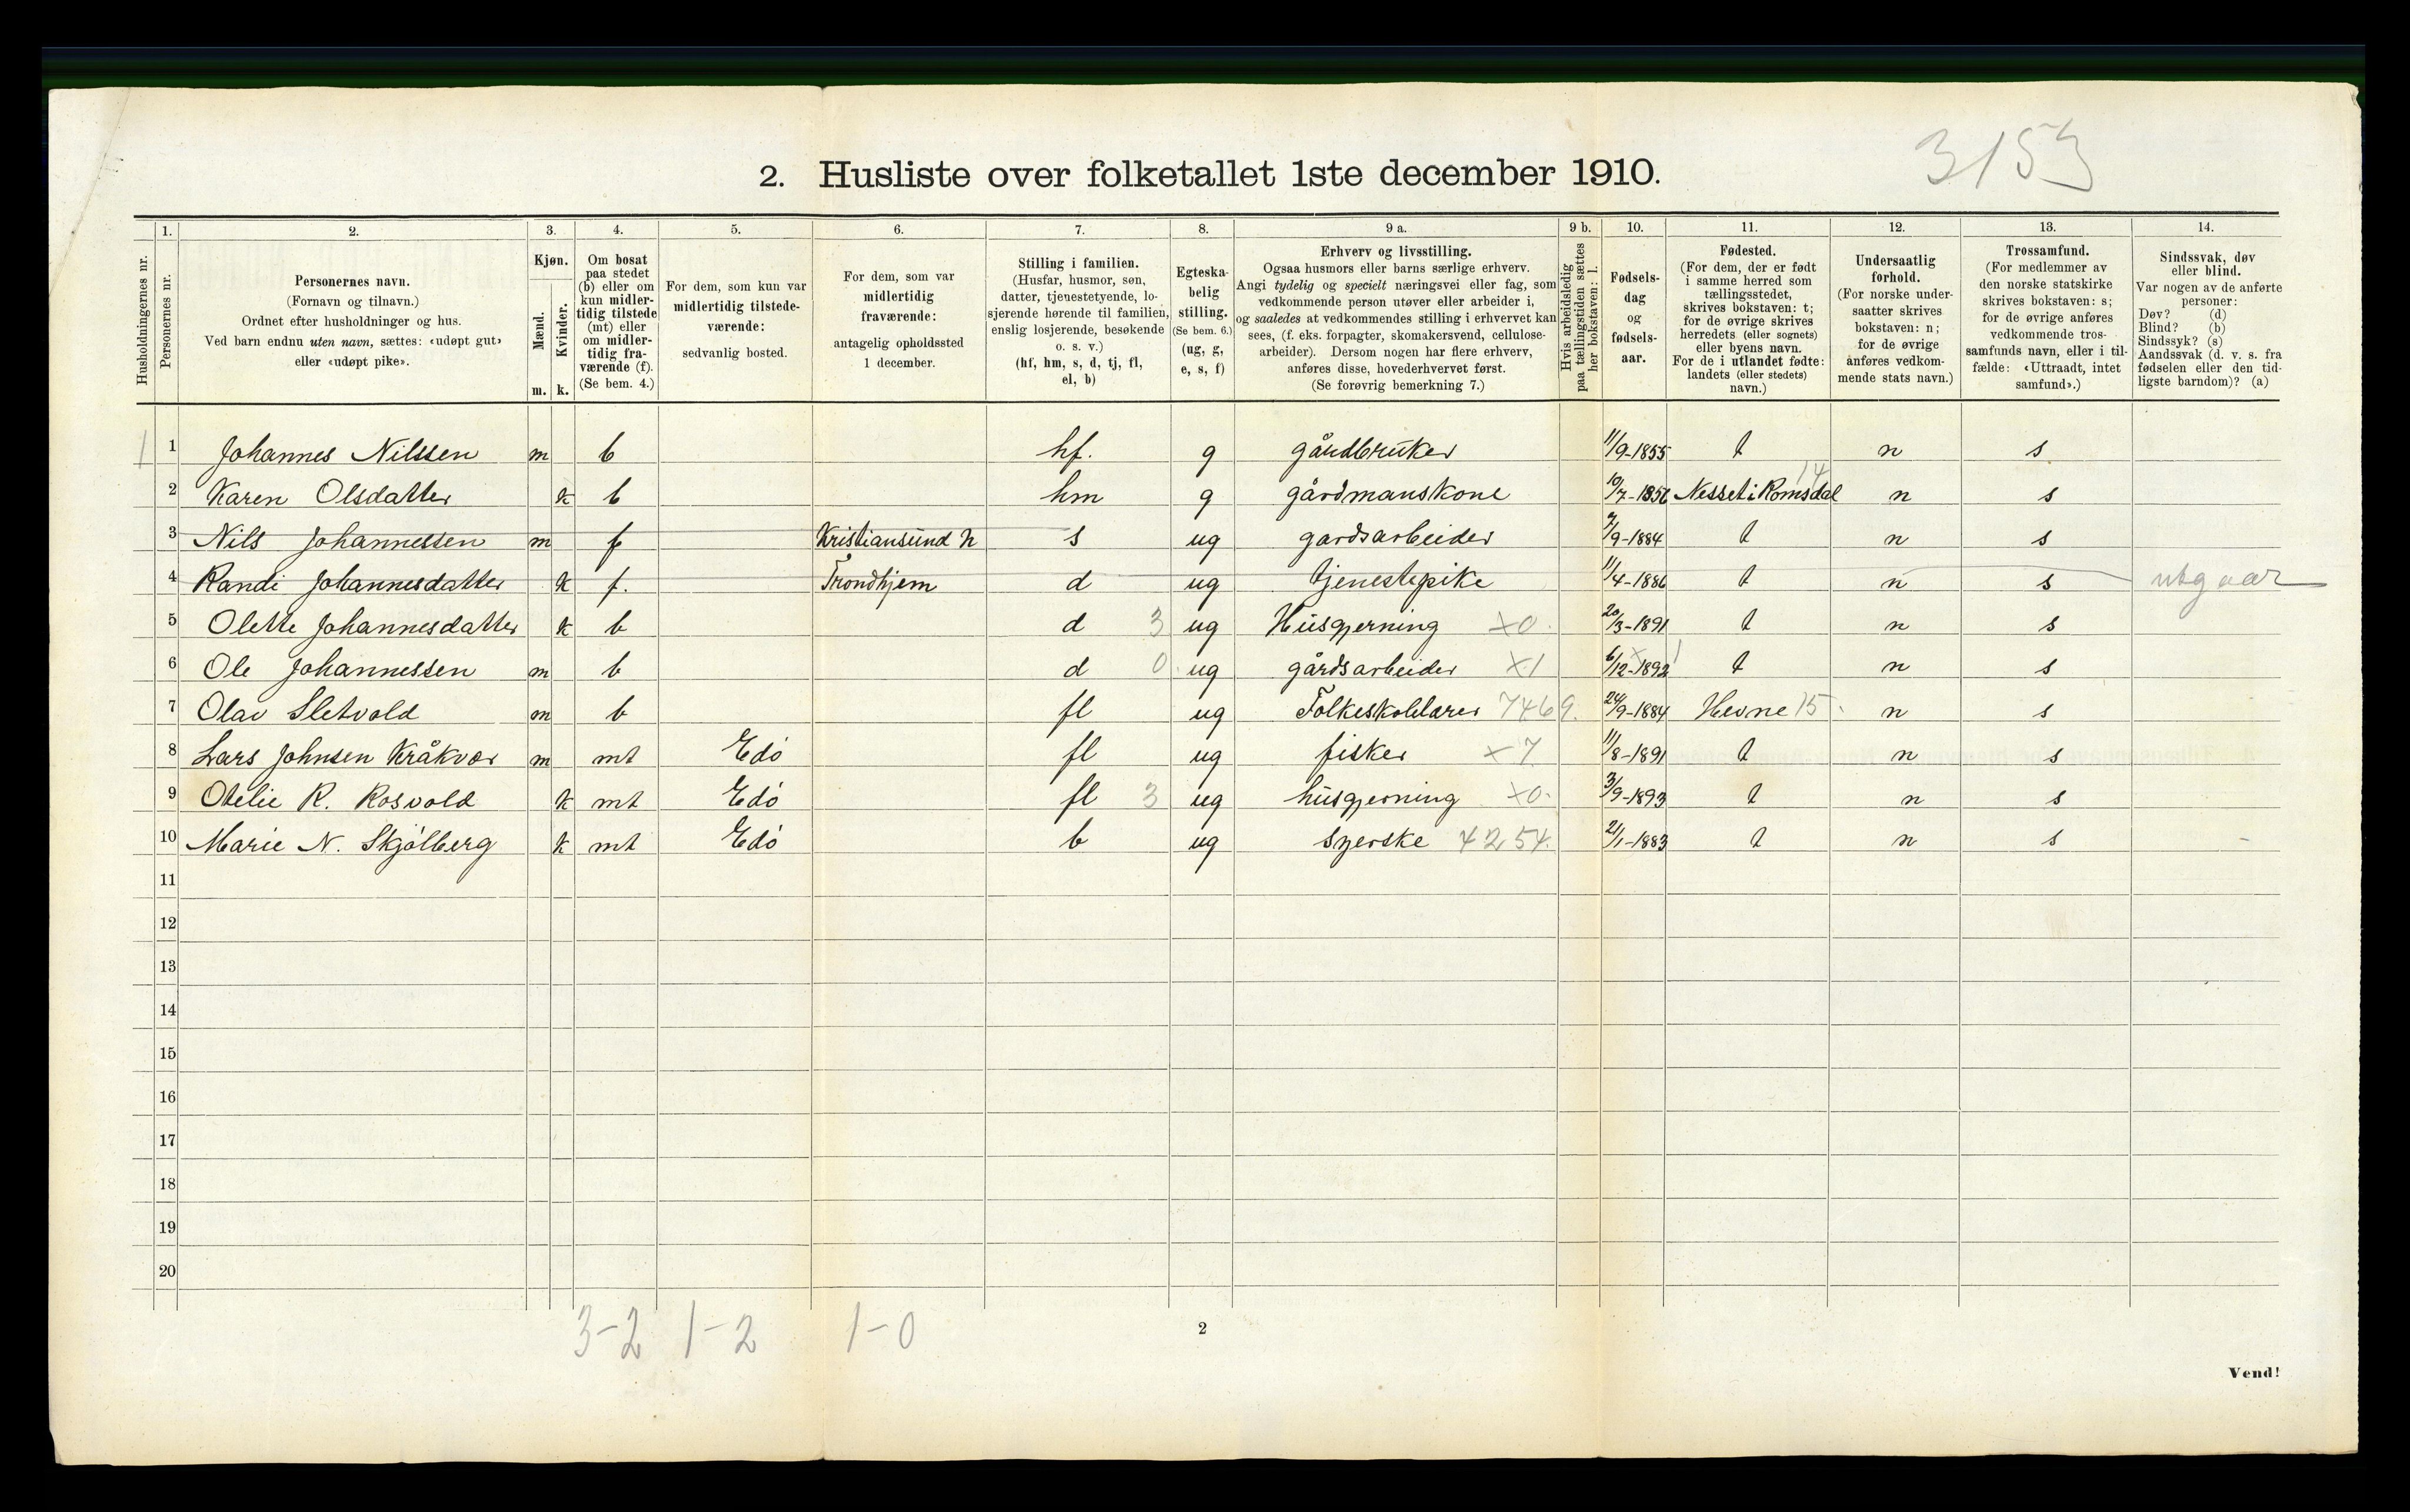 3153
2. Husliste over folketallet 1ste december 1910.
Husholdningernes nr.
1. Personernes nr.
2. Personernes navn.
(Fornavn og tilnavn.)
Ordnet efter husholdninger og hus.
Ved barn endnu uten navn, sættes: «udøpt gut»
eller «udøpt pike».
3. Kjøn.
Mænd. m.
Kvinder. k.
4. Om bosat
paa stedet
(b) eller om
kun midler-
tidig tilstede
(mt) eller
om midler-
tidig fra-
værende (f).
(Se bem. 4.)
5. For dem, som kun var
midlertidig tilstede-
værende:
sedvanlig bosted.
6. For dem, som var
midlertidig
fraværende:
antagelig opholdssted
1 december.
7. Stilling i familien.
(Husfar, husmor, søn,
datter, tjenestetyende, lo-
sjerende hørende til familien,
enslig losjerende, besøkende
o. s. v.)
(hf, hm, s, d, tj, fl,
el, b)
8. Egteska-
belig
stilling.
(Se bem. 6.)
(ug, g,
e, s, f)
9 a. Erhverv og livsstilling.
Ogsaa husmors eller barns særlige erhverv.
Angi tydelig og specielt næringsvei eller fag, som
vedkommende person utøver eller arbeider i,
og saaledes at vedkommendes stilling i erhvervet kan
sees, (f. eks. forpagter, skomakersvend, cellulose-
arbeider). Dersom nogen har flere erhverv,
anføres disse, hovederhvervet først.
(Se forøvrig bemerkning 7.)
9 b. Hvis arbeidsledig
paa tællingstiden sættes
her bokstaven: l.
10. Fødsels-
dag
og
fødsels-
aar.
11. Fødested.
(For dem, der er født
i samme herred som
tællingsstedet,
skrives bokstaven: t;
for de øvrige skrives
herredets (eller sognets)
eller byens navn.
For de i utlandet fødte:
landets (eller stedets)
navn.)
12. Undersaatlig
forhold.
(For norske under-
saatter skrives
bokstaven: n;
for de øvrige
anføres vedkom-
mende stats navn.)
13. Trossamfund.
(For medlemmer av
den norske statskirke
skrives bokstaven: s;
for de øvrige anføres
vedkommende tros-
samfunds navn, eller i til-
fælde: «Uttraadt, intet
samfund».)
14. Sindssvak, døv
eller blind.
Var nogen av de anførte
personer:
Døv? (d)
Blind? (b)
Sindssyk? (s)
Aandssvak (d. v. s. fra
fødselen eller den tid-
ligste barndom)? (a)
1 1 Johannes Nilssen m b hf. g gårdbruker 11/9-1855 t n s
2 Karen Olsdatter k b hm g gårdmanskone 10/7-1856 Nesset i Romsdal 14 n s
3 Nils Johannessen m f Kristiansund N s ug gardsarbeider 7/9-1884 t n s
4 Randi Johannesdatter k f. Trondhjem d ug tjenestepike 11/4-1886 t n s utgaar
5 Olette Johannesdatter k b d 3 ug Husgjerning x0. 20/3-1891 t n s
6 Ole Johannessen m b d 0. ug gårdsarbeider x1 6/12-1892 t n s
7 Olav Sletvold m b fl ug Folkeskolelærer 7469. 24/9-1884 Hevne 15. n s
8 Lars Johnsen Kråkvær m mt Edö fl ug fisker x7 11/8-1891 t n s
9 Otelie R. Rosvold k mt Edö fl 3 ug husgjerning x0. 3/9-1893 t n s
10 Marie N. Skjölberg k mt Edö b ug syerske 4254. 2/1-1883 t n s -
11
12
13
14
15
16
17
18
19
20
3-2 1-2 1-0
2
Vend!